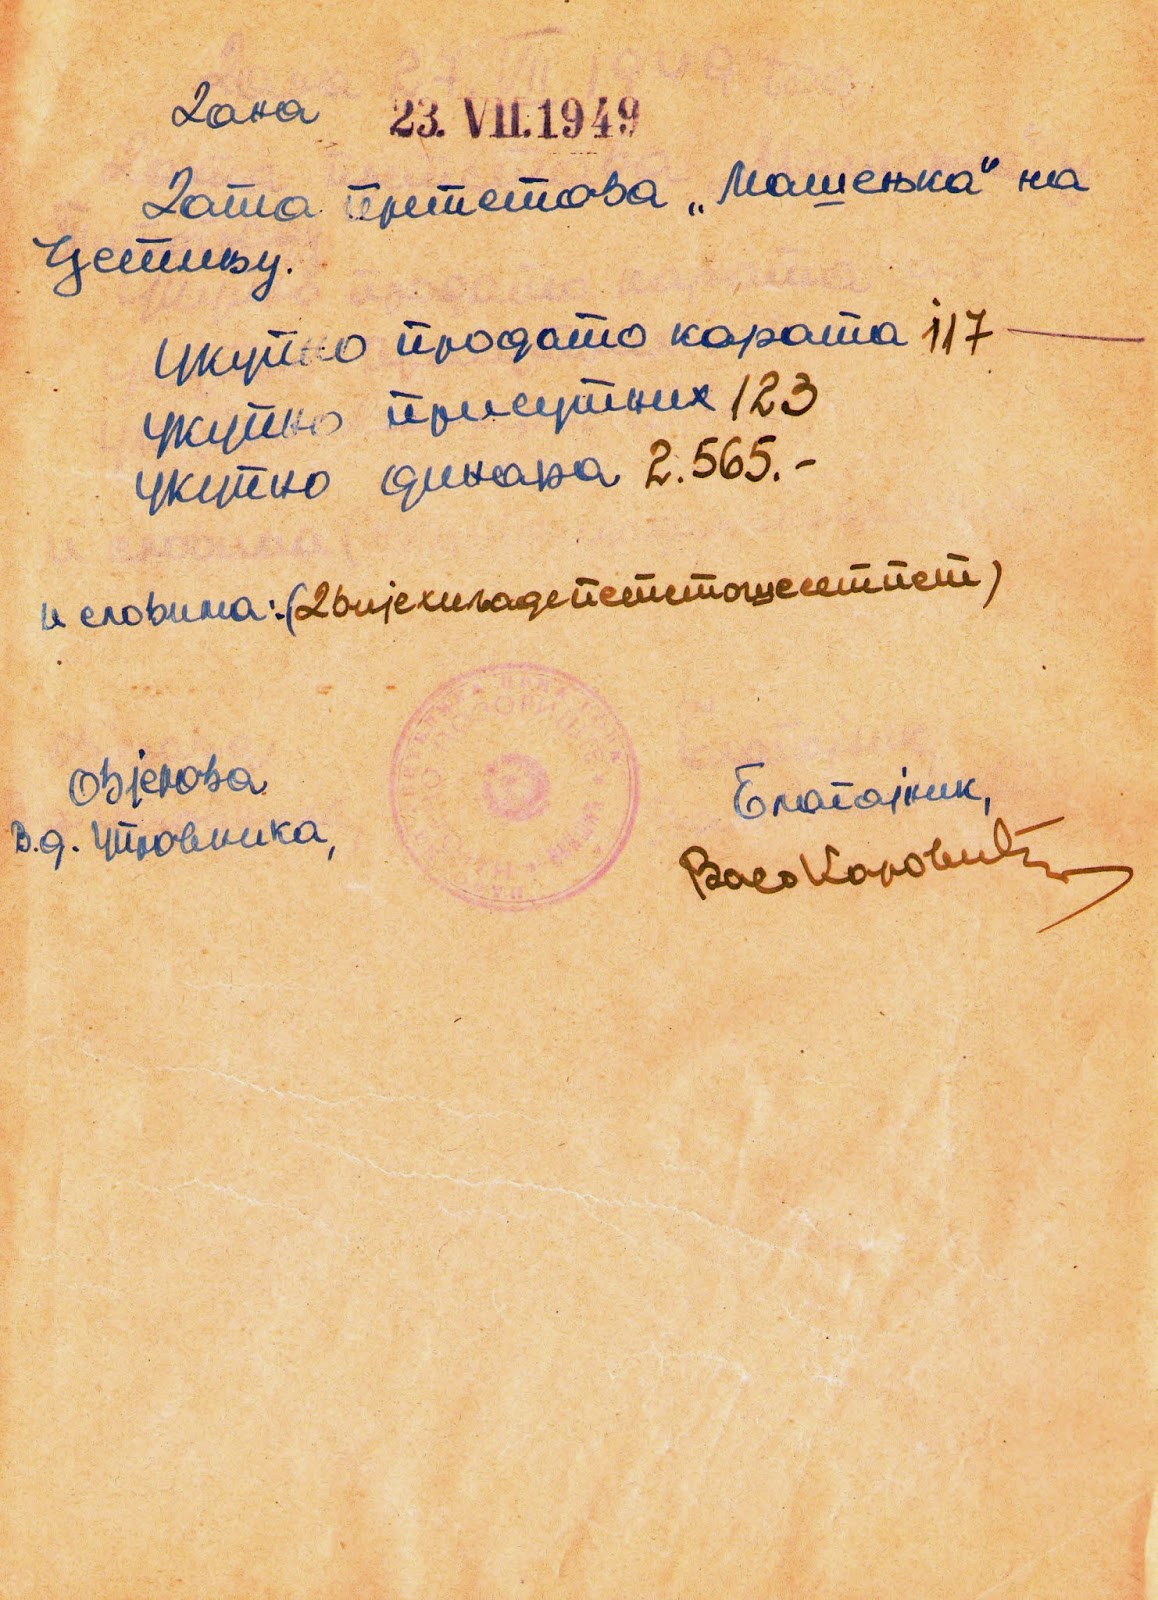 Дана 23. VII. 1949
Дата претстова „Машењка" на
Цетињу.
Укупно продато карата 117
Укупно присутних 123
Укупно динара 2.565.-
и словима: (Двијехиљадепетстошесетпет)
Овјерова
В.д. Управника,
Благајник,
Васо